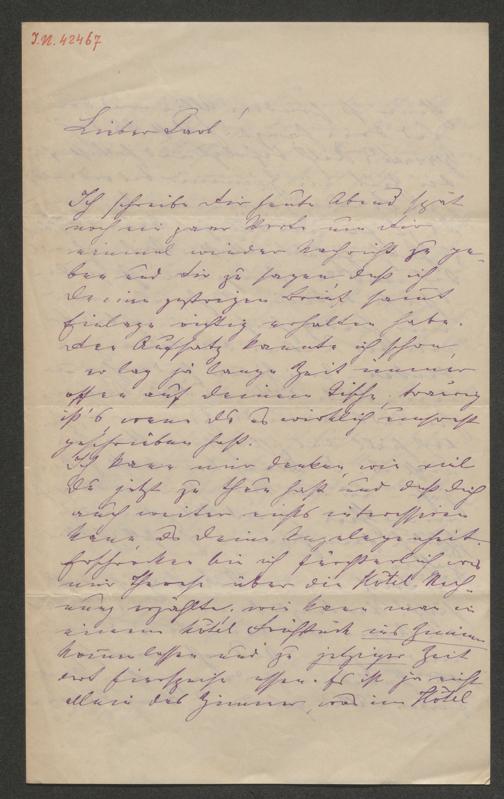 I.N. 42467
Lieber Karl!
Ich schreibe Dir heute Abend spät
noch ein paar Worte um Dir
einmal wieder Nachricht zu ge-
ben und Dir zu sagen daß ich
Deinen gestrigen Brief sammt
Einlage richtig erhalten habe.
Den Aufsatz kannte ich schon,
er lag ja lange Zeit immer
offen auf Deinem Tische, traurig
ist's wenn Du es wirklich umsonst
geschrieben hast.
Ich kann mir denken wie viel
Du jetzt zu thun hast und daß Dich
auch weiter nichts interessiren
kann als Deine Angelegenheit.
Erschrocken bin ich fürchterlich wie
mir Therese über die Hôtel Rech-
nung erzählte. wie kann man in
einem Hôtel Frühstück ins Zimmer
kommen lassen und zu jetziger Zeit
dort Eierspeise essen. Es ist ja nicht
allein das Zimmer, was im Hôtel